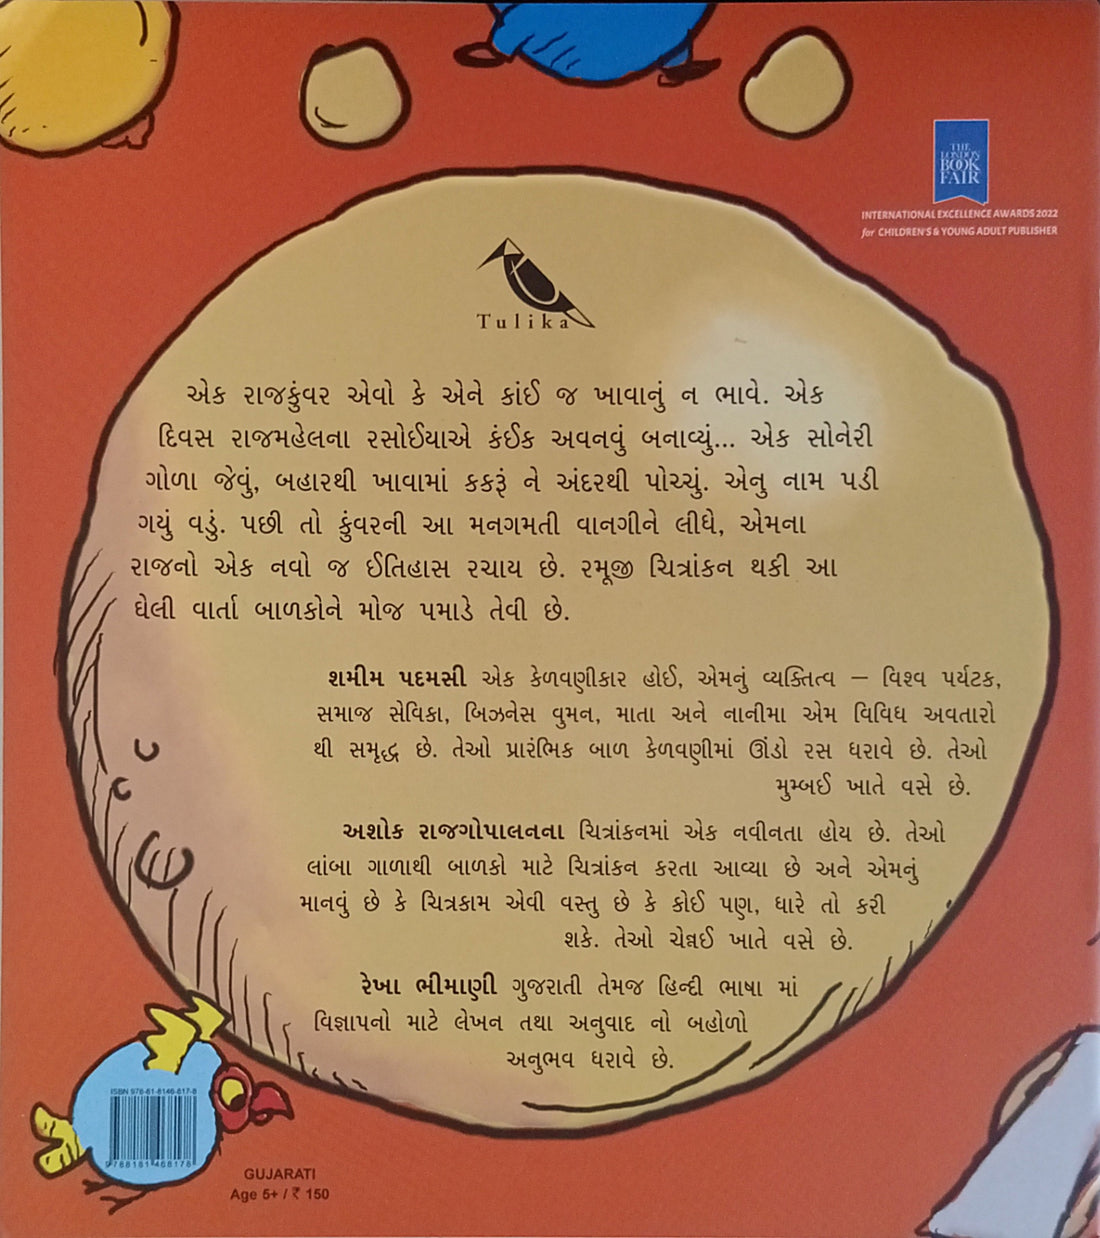 THE
LONDON
BOOK
FAIR
INTERNATIONAL EXCELLENCE AWARDS 2022
for CHILDREN'S & YOUNG ADULT PUBLISHER
Tulika
એક રાજકુંવર એવો કે એને કાંઈ જ ખાવાનું ન ભાવે. એક
દિવસ રાજમહેલના રસોઈયાએ કંઈક અવનવું બનાવ્યું... એક સોનેરી
ગોળા જેવું, બહારથી ખાવામાં કકરૂં ને અંદરથી પોચ્ચું. એનુ નામ પડી
ગયું વડું. પછી તો કુંવરની આ મનગમતી વાનગીને લીધે, એમના
રાજનો એક નવો જ ઈતિહાસ રચાય છે. રમૂજી ચિત્રાંકન થકી આ
ઘેલી વાર્તા બાળકોને મોજ પમાડે તેવી છે.
શમીમ પદમસી એક કેળવણીકાર હોઈ, એમનું વ્યક્તિત્વ – વિશ્વ પર્યટક,
સમાજ સેવિકા, બિઝનેસ વુમન, માતા અને નાનીમા એમ વિવિધ અવતારો
થી સમૃદ્ધ છે. તેઓ પ્રારંભિક બાળ કેળવણીમાં ઊંડો રસ ધરાવે છે. તેઓ
મુમ્બઈ ખાતે વસે છે.
અશોક રાજગોપાલનના ચિત્રાંકનમાં એક નવીનતા હોય છે. તેઓ
લાંબા ગાળાથી બાળકો માટે ચિત્રાંકન કરતા આવ્યા છે અને એમનું
માનવું છે કે ચિત્રકામ એવી વસ્તુ છે કે કોઈ પણ, ધારે તો કરી
શકે. તેઓ ચેન્નઈ ખાતે વસે છે.
રેખા ભીમાણી ગુજરાતી તેમજ હિન્દી ભાષા માં
વિજ્ઞાપનો માટે લેખન તથા અનુવાદ નો બહોળો
અનુભવ ધરાવે છે.
ISBN 978-81-8146-817-8
9788181468178
GUJARATI
Age 5+ / ₹ 150